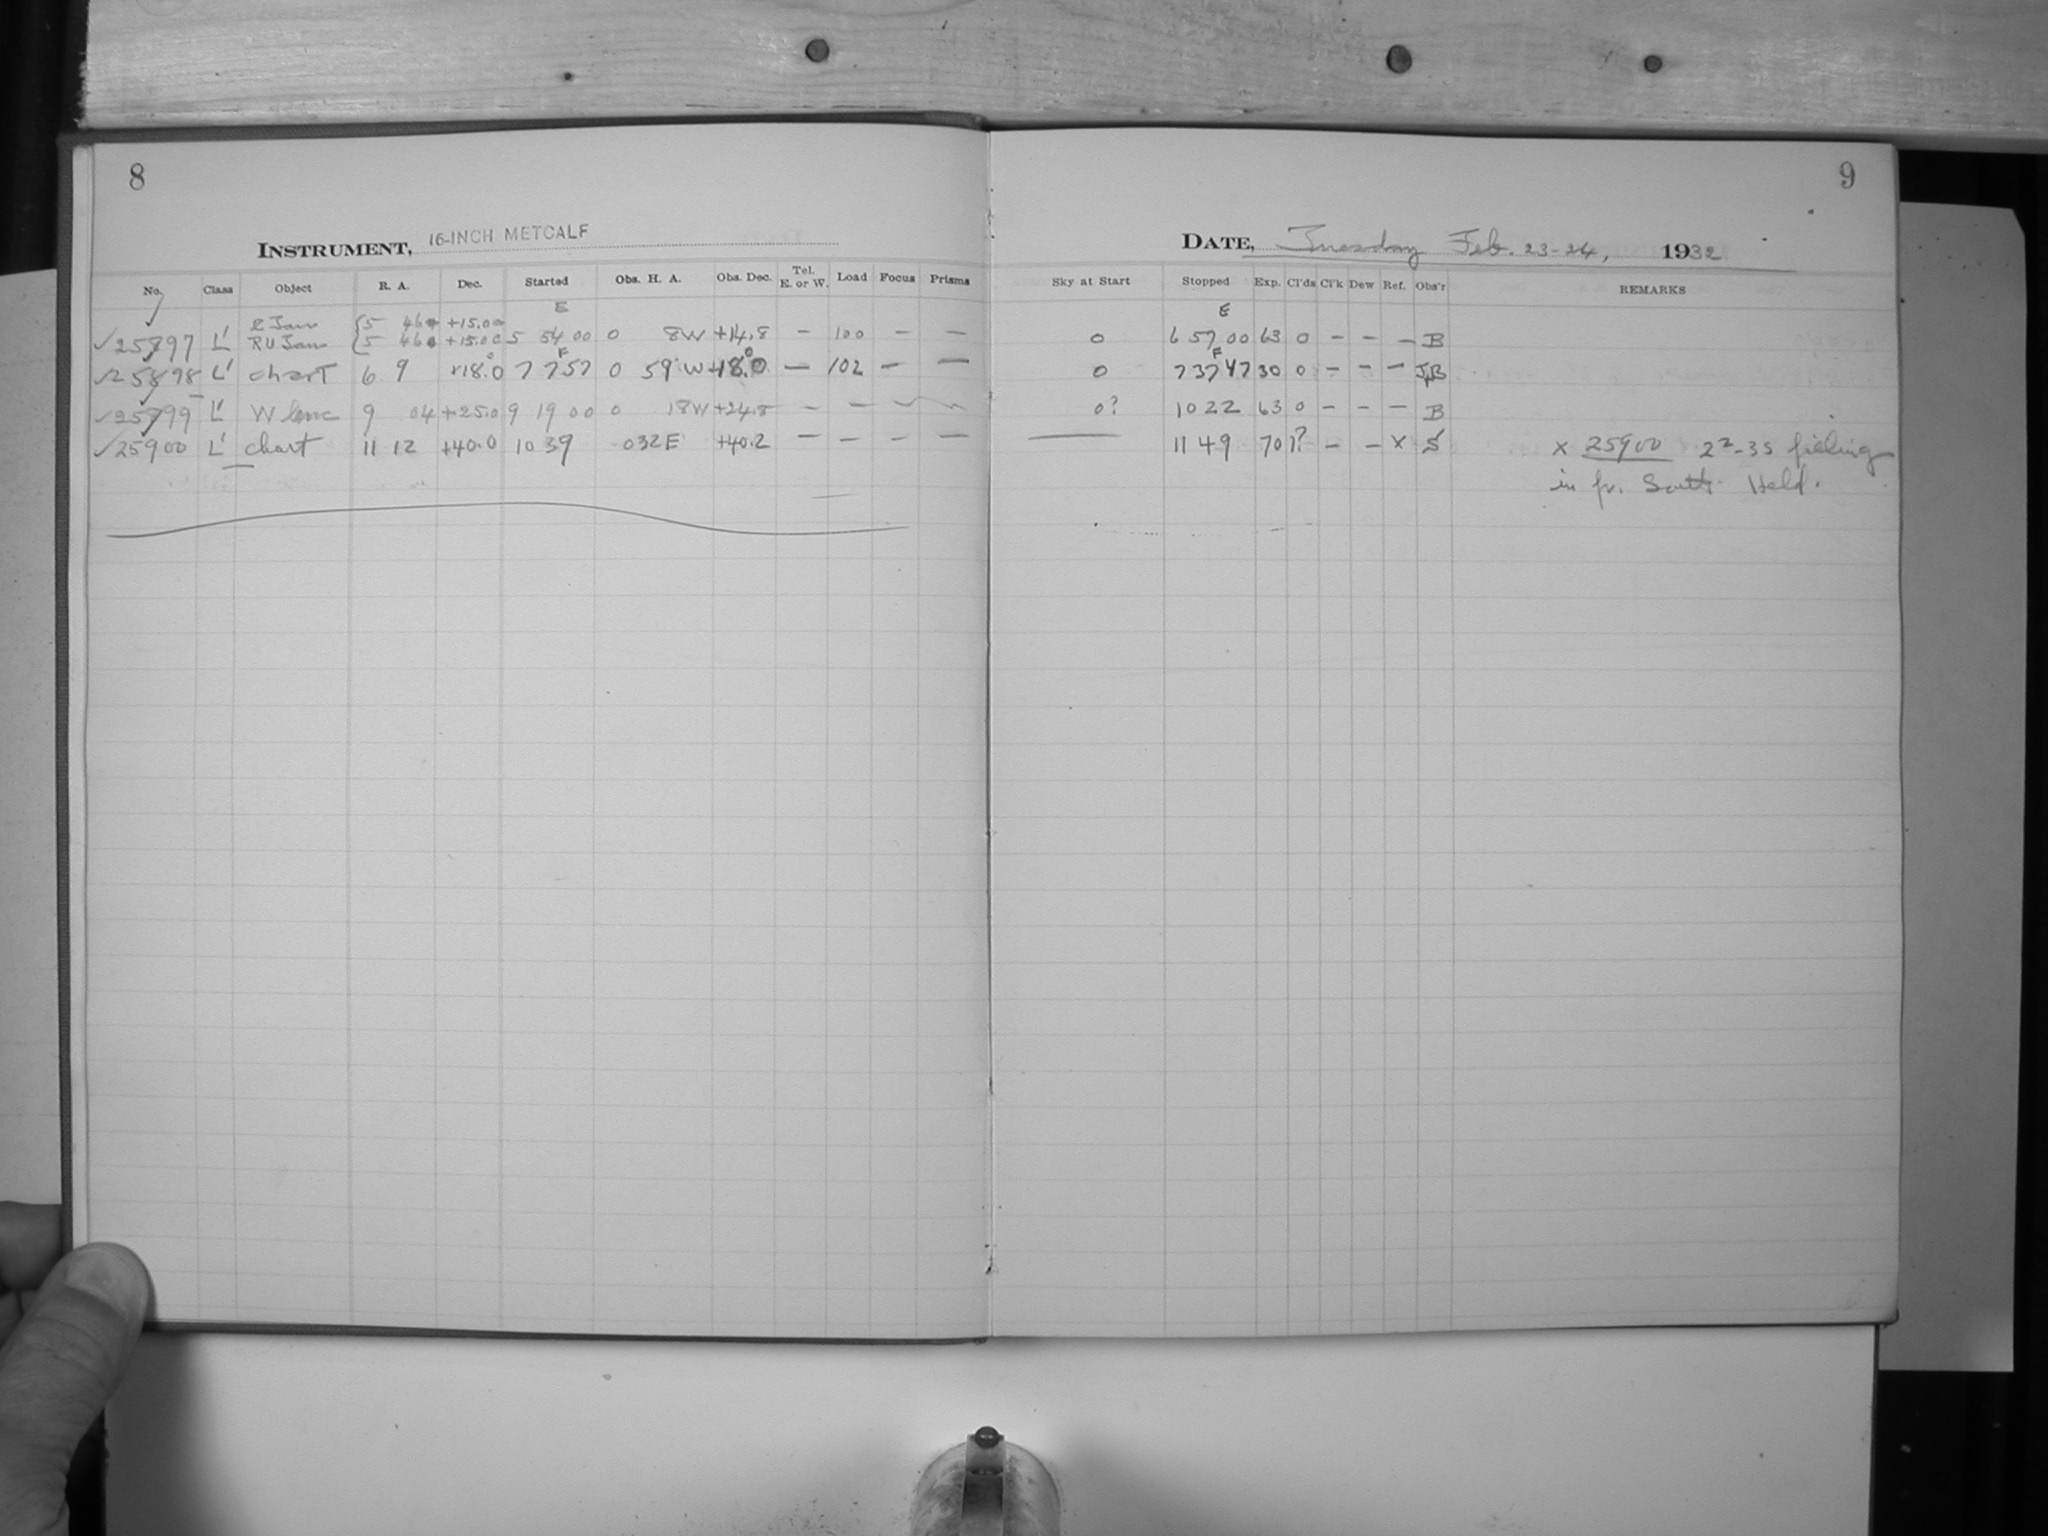 8
INSTRUMENT, 16-INCH METCALF
No. Class Object R. A. Dec. Started Obs. H. A. Obs. Dec. Tel. E. or W. Load Focus Prisms
E
5 46 +15.0
✓25897 L' RU Tau 5 46 +15.0 5 54 00 0 8W +14.8 – 100 – –
F
✓25898 L' chart 6 9 +18.0 7 7 57 0 59 W +18.0 – 102 – –
✓25899 L' 9 04 +25.0 9 19 00 0 18W +24.8 – –
✓25900 L' chart 11 12 +40.0 10 39 0 32E +40.2 – – – –
9
DATE, Tuesday Feb. 23-24, 1932
Sky at Start Stopped Exp. Cl'ds Cl'k Dew Ref. Obs'r REMARKS
E
0 6 57 00 63 0 – – – B
F
0 7 37 47 30 0 – – –
0? 10 22 63 0 – – – B
11 49 70 1? – – x S x 25900
in fr. Held.